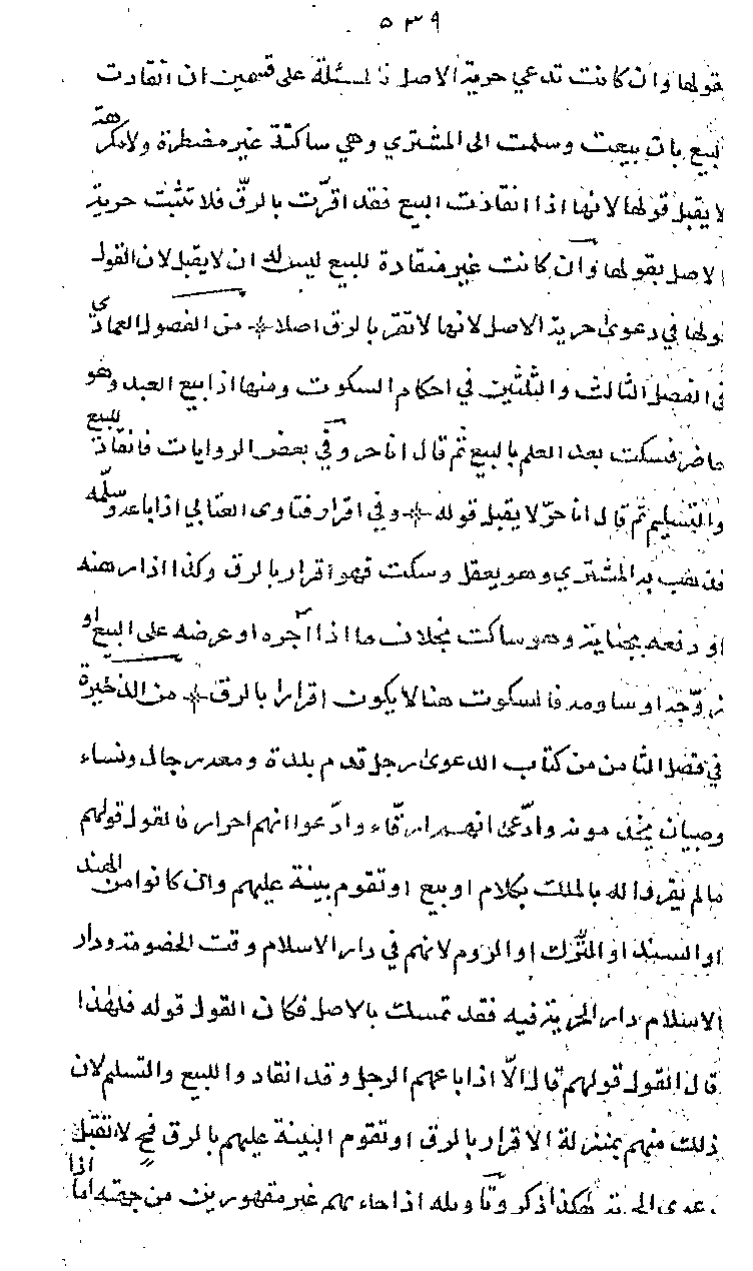 ٥٣٩
بقولها وان كانت تدعي حرية الاصل فالمسئلة على قسمين ان انقادت
للبيع بان بيعت وسلمت الى المشتري وهي ساكتة غير مضطرة ولا مكرهة
لا يقبل قولها لانها اذا انقادت البيع فقد اقرّت بالرقّ فلا تثبت حرية
الاصل بقولها وان كانت غير منقادة للبيع ليس له ان لا يقبل لان القول
قولها في دعوى حرية الاصل لانها لا تقر بالرق اصلا ٭ من الفصول العمادي
في الفصل الثالث والثلثين في احكام السكوت ومنها اذا بيع العبد وهو
حاضر فسكت بعد العلم بالبيع ثم قال انا حر وفي بعض الروايات فانقاد للبيع
والتسليم ثم قال انا حرّ لا يقبل قوله ٭ وفي اقرار فتاوى العتابي اذا باعه وسلمه
المشتري وهو يعقل وسكت فهو اقرار بالرق وكذا اذا رهنه
او دفعه بجناية وهو ساكت بخلاف ما اذا آجره او عرضه على البيع او
زوّجه او ساومه فالسكوت هنا لا يكون اقرارا بالرق ٭ من الذخيرة
في فصل الثامن من كتاب الدعوى رجل قدم بلدة ومعه رجال ونساء
وصبيان يخدمونه وادّعى انهم ارقّاء وادّعوا انهم احرار فالقول قولهم
ما لم يقروا له بالملك بكلام او بيع او تقوم بينة عليهم وان كانوا من الهند
او السند او الترك او الروم لانهم في دار الاسلام وقت الخصومة ودار
الاسلام دار الحرية فيه فقد تمسك بالاصل فكان القول قوله فلهذا
قال القول قولهم قال الّا اذا باعهم الرجل وقد انقادوا للبيع والتسليم لان
ذلك منهم بمنزلة الاقرار بالرق او تقوم البينة عليهم بالرق فح لا تقبل
دعوى الحرية هكذا ذكر وتاويله اذا جاء بهم غير مقهورين من جهته اما اذا